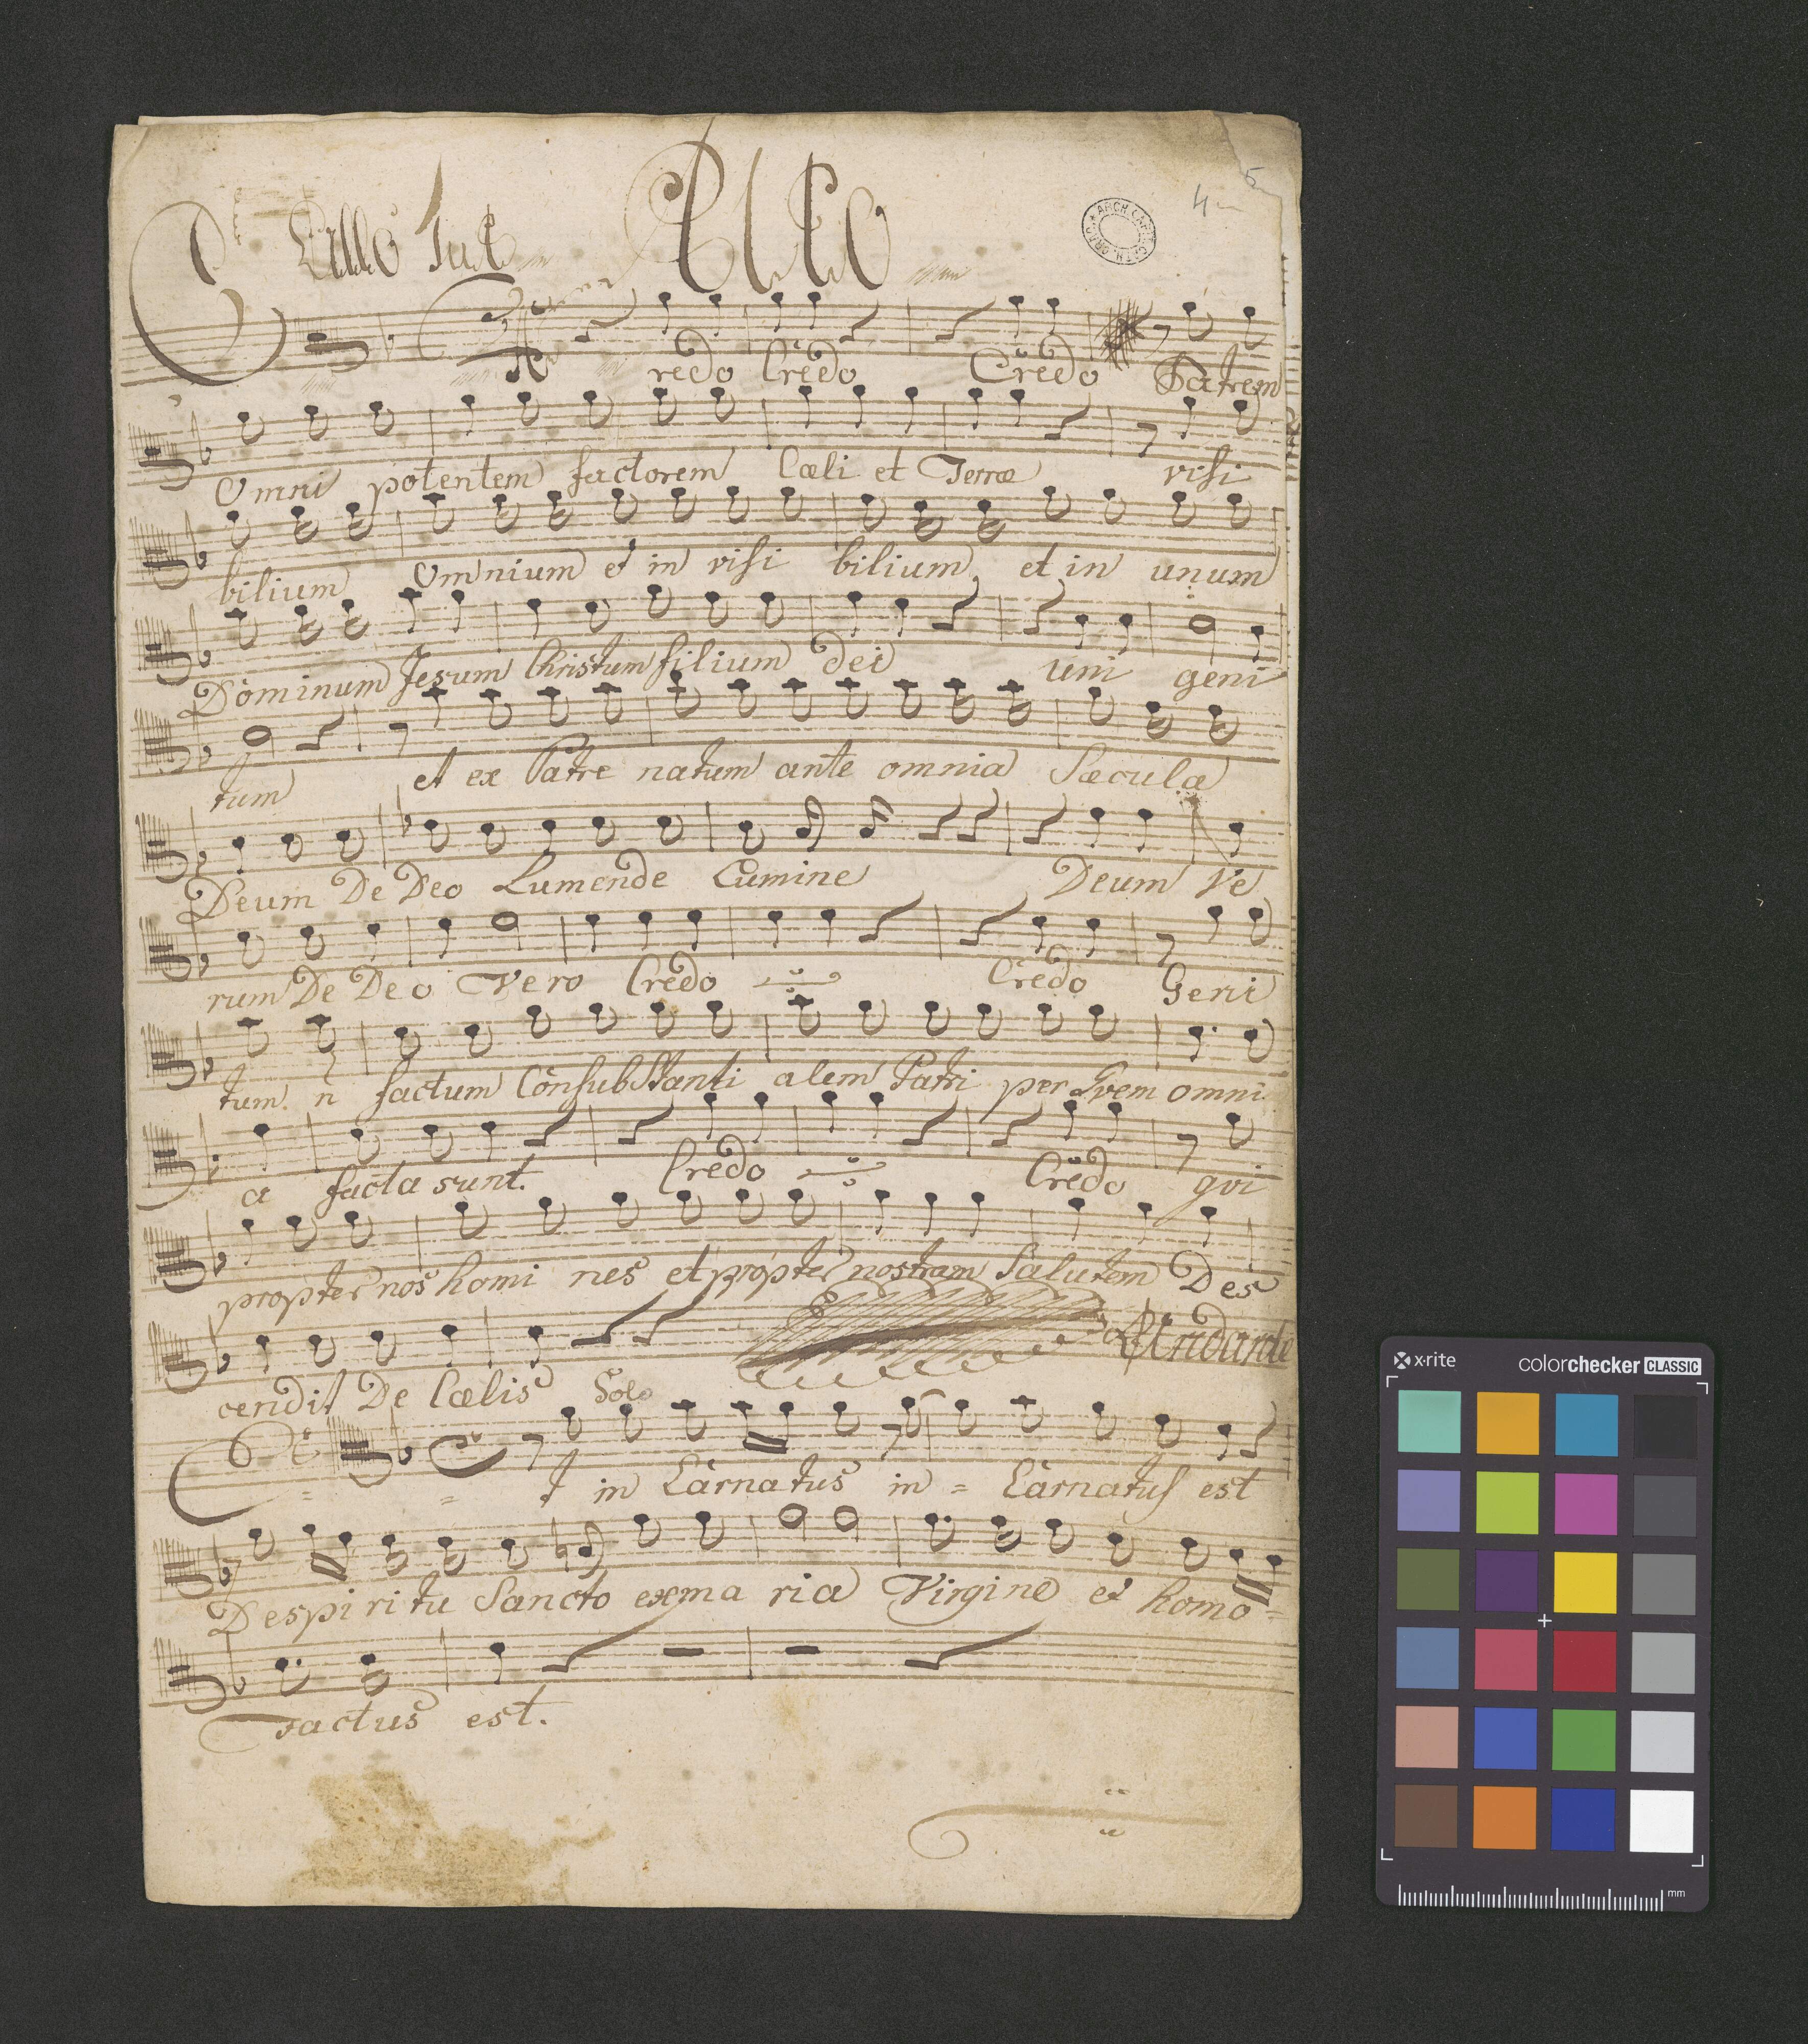 Alto
4
redo Credo Credo Patrem
Omni potentem factorem Cœli et Terræ visi
bilium Omnium et in visi bilium et in unum
Dominum Jesum Christum filium dei uni geni
tum et ex Patre natum ante omnia Sæcula
Deum De Deo Lumende Lumine Deum Ve
rum De Deo Vero Credo Credo Geni
tum n factum Consubstanti alem Patri per Qvem omni
a facta sunt. Credo Credo qvi
propter nos homi nes et propter nostram Salutem Des
Andante
cendit De Cælis Solo
t in Carnatus in = Carnatus est
Despiritu Sancto exma ria Virgine et homo =
Factus est.
x-rite colorchecker CLASSIC
mm